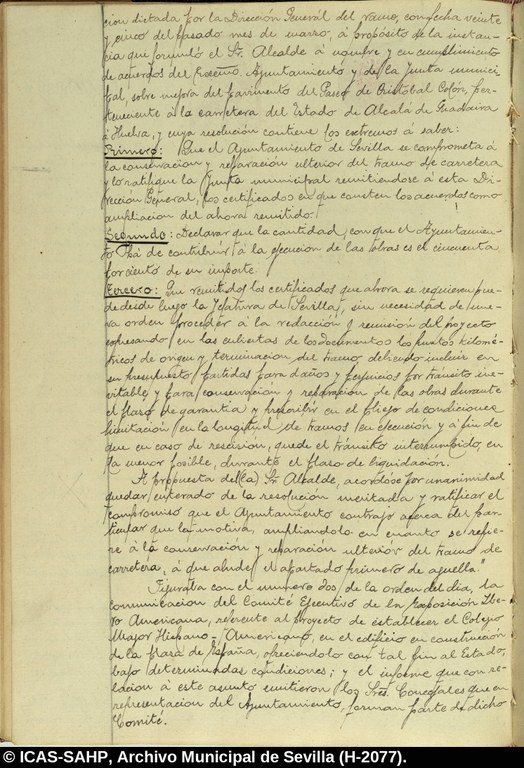 cion dictada por la Dirección General del ramo, con fecha veinte
y cinco del pasado mes de marzo, á propósito de la instan-
cia que formuló el Sr. Alcalde á nombre y en cumplimiento
de acuerdos del Excmo. Ayuntamiento y de la Junta munici
pal, sobre mejora del pavimento del Paseo de Cristobal Colón, per-
teneciente á la carretera del Estado de Alcalá de Guadaira
á Huelva, y cuya resolución contiene los extremos á saber:
Primero: Que el Ayuntamiento de Sevilla se comprometa á
la conservacion y reparación ulterior del tramo de carretera
y lo ratifique la Junta municipal remitiendose á esta Di-
rección General, los certificados en que consten los acuerdos como
ampliacion del ahora remitido.
Segundo: Declarar que la cantidad, con que el Ayuntamien-
to há de contribuir á la ejecucion de las obras es el cincuenta
por ciento de su importe.
Tercero: Que remitidos los certificados que ahora se requieren pue-
de desde luego la Jefatura de Sevilla, sin necesidad de nue-
va orden proceder á la redacción y remisión del proyecto
expresando en las cubiertas de los documentos los puntos kilomé-
tricos de origen y terminacion del tramo, debiendo incluir en
su presupuesto partidas para daños y perjuicios por tránsito ine-
vitable y para conservación y reparación de las obras durante
el plazo de garantia y prescribir en el pliego de condiciones
limitación en la longitud de tramos en ejecución y á fin de
que en caso de rescisión, quede el tránsito interrumpido, en
lo menor posible, durante el plazo de liquidación.
A propuesta del (a) Sr. Alcalde, acordóse por unanimidad
quedar enterado de la resolución incitada y ratificar el
compromiso que el Ayuntamiento contrajo acerca del par-
ticular que la motiva, ampliandolo en cuanto se refie-
re á la conservación y reparación ulterior del tramo de
carretera, á que alude el apartado primero de aquella."
Figuraba con el numero dos, de la orden del dia, la
comunicacion del Comité Ejecutivo de la Exposición Ibe-
ro Americana, referente al proyecto de establecer el Colegio
Mayor Hispano-Americano, en el edificio en construcción
de la plaza de España, ofreciendolo con tal fin al Estado,
bajo determinadas condiciones; y el informe que con re-
lación á este asunto emitieron los Sres. Concejales que en
representacion del Ayuntamiento, forman parte de dicho
Comité.
© ICAS-SAHP, Archivo Municipal de Sevilla (H-2077).